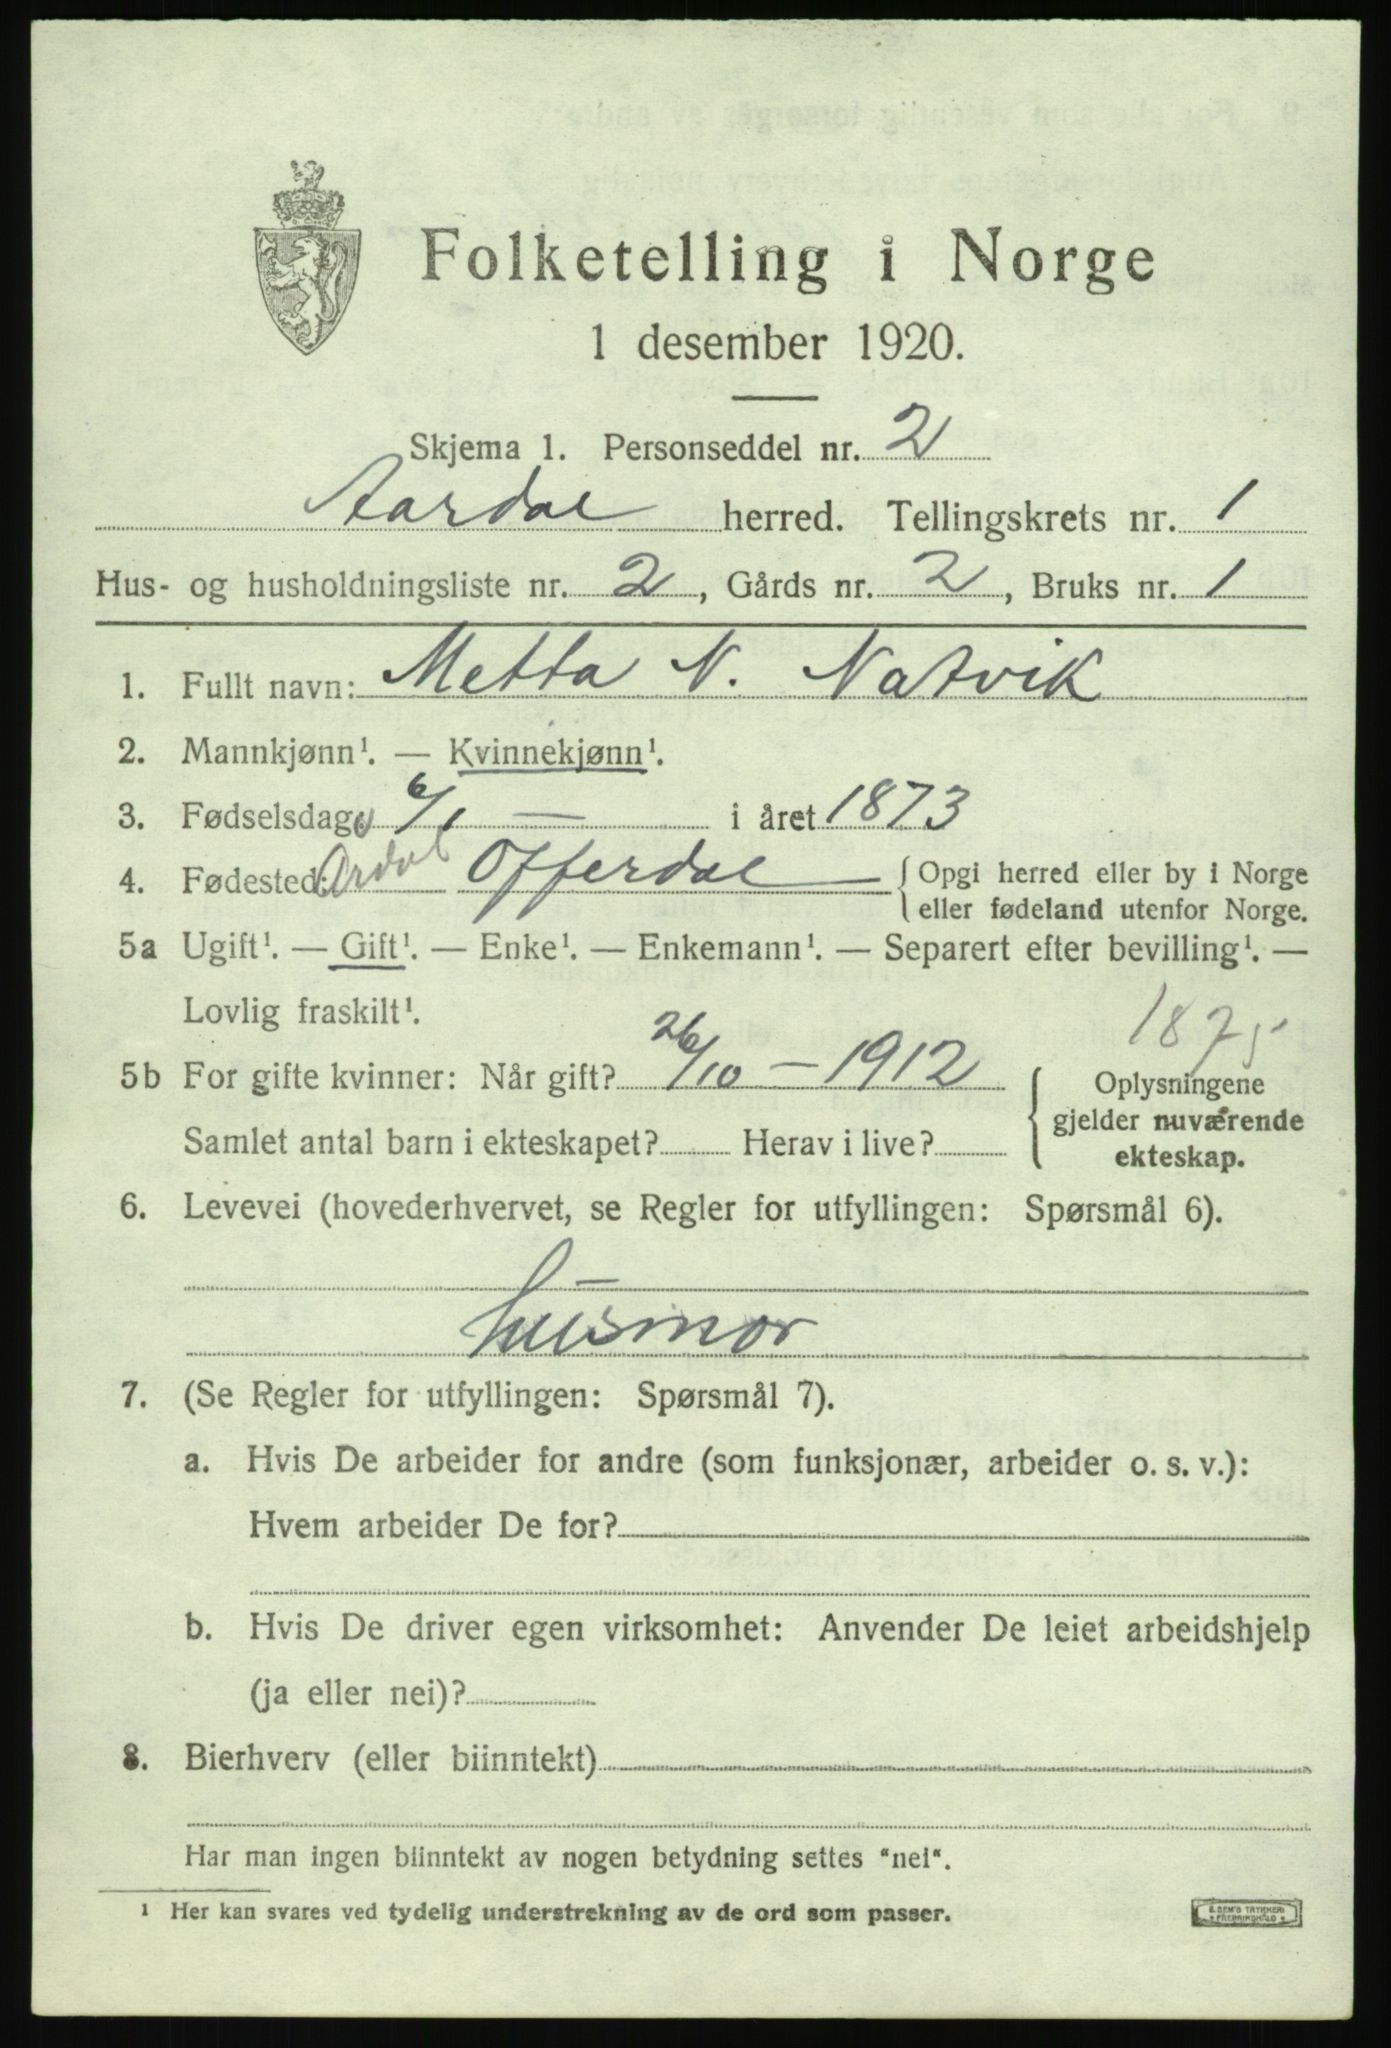 Folketelling i Norge
1 desember 1920.
Skjema 1. Personseddel nr. 2
Aardal herred. Tellingskrets nr. 1
Hus- og husholdningsliste nr. 2, Gårds nr. 2, Bruks nr. 1
1. Fullt navn: Metta N. Natvik
2. Mannkjønn¹. — Kvinnekjønn¹.
3. Fødselsdag: 6/1 — i året 1873
4. Fødested: Årdal Offerdal { Opgi herred eller by i Norge
eller fødeland utenfor Norge.
5a Ugift¹. — Gift¹. — Enke¹. — Enkemann¹. — Separert efter bevilling¹. —
Lovlig fraskilt¹.
1875
5b For gifte kvinner: Når gift? 26/10 — 1912
Samlet antal barn i ekteskapet? Herav i live?
{ Oplysningene
gjelder nuværende
ekteskap.
6. Levevei (hovederhvervet, se Regler for utfyllingen: Spørsmål 6).
husmor
7. (Se Regler for utfyllingen: Spørsmål 7).
a. Hvis De arbeider for andre (som funksjonær, arbeider o. s. v.):
Hvem arbeider De for?
b. Hvis De driver egen virksomhet: Anvender De leiet arbeidshjelp
(ja eller nei)?
8. Bierhverv (eller biinntekt)
Har man ingen biinntekt av nogen betydning settes "nei".
¹ Her kan svares ved tydelig understrekning av de ord som passer.